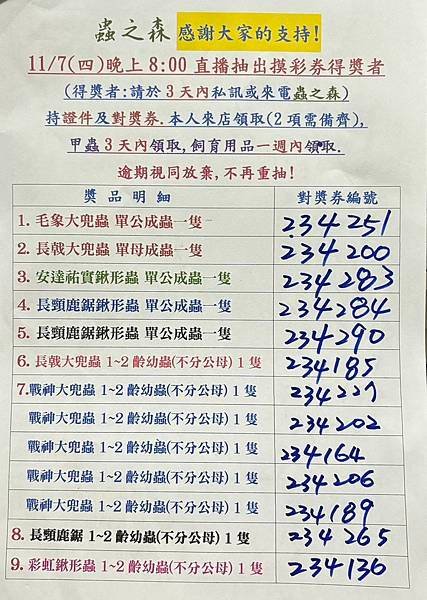 蟲之森 感謝大家的支持!
11/7(四)晚上 8:00 直播抽出摸彩券得獎者
(得獎者:請於 3 天內私訊或來電蟲之森)
持證件及對獎券.本人來店領取(2 項需備齊),
甲蟲 3 天內領取,飼育用品一週內領取.
逾期視同放棄,不再重抽!
獎 品 明 細 對獎券編號
1. 毛象大兜蟲 單公成蟲一隻 234251
2. 長戟大兜蟲 單母成蟲一隻 234200
3. 安達祐實鍬形蟲 單公成蟲一隻 234283
4. 長頸鹿鋸鍬形蟲 單公成蟲一隻 234284
5. 長頸鹿鋸鍬形蟲 單公成蟲一隻 234290
6. 長戟大兜蟲 1~2 齡幼蟲(不分公母) 1 隻 234185
7.戰神大兜蟲 1~2 齡幼蟲(不分公母) 1 隻 234227
戰神大兜蟲 1~2 齡幼蟲(不分公母) 1 隻 234202
戰神大兜蟲 1~2 齡幼蟲(不分公母) 1 隻 234164
戰神大兜蟲 1~2 齡幼蟲(不分公母) 1 隻 234206
戰神大兜蟲 1~2 齡幼蟲(不分公母) 1 隻 234189
8. 長頸鹿鋸 1~2 齡幼蟲(不分公母) 1 隻 234265
9. 彩虹鍬形蟲 1~2 齡幼蟲(不分公母) 1 隻 234136